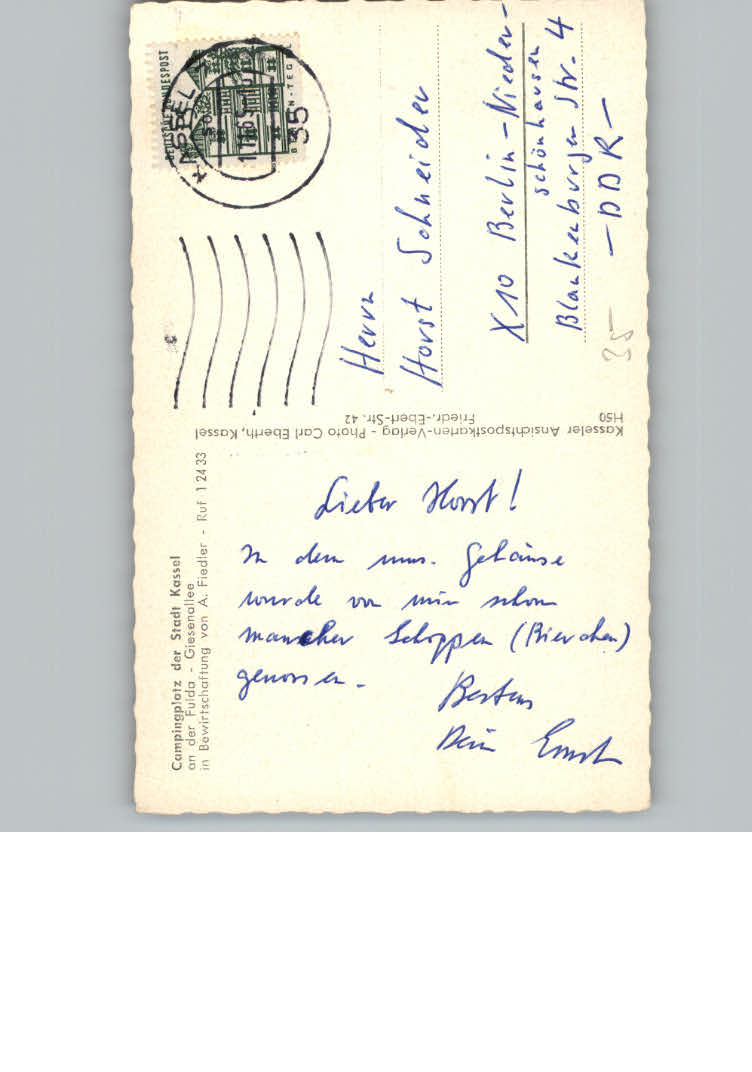 Campingplatz der Stadt Kassel
an der Fulda - Giesenallee
in Bewirtschaftung von A. Fiedler - Ruf 1 24 33
Lieber Horst!
In dem ums. Gehäuse
wurde von mir schon
mancher Schoppen (Bierchen)
genossen.
Bestens
Dein Ernst
Kasseler Ansichtspostkarten-Verlag - Photo Carl Eberth, Kassel
Friedr.-Ebert-Str. 42
H50
DEUTSCHE BUNDESPOST
BERLIN-TEGEL
KASSEL
35
Herrn
Horst Schneider
X10 Berlin-Nieder-
schönhausen
Blankenburger Str. 4
— DDR —
35